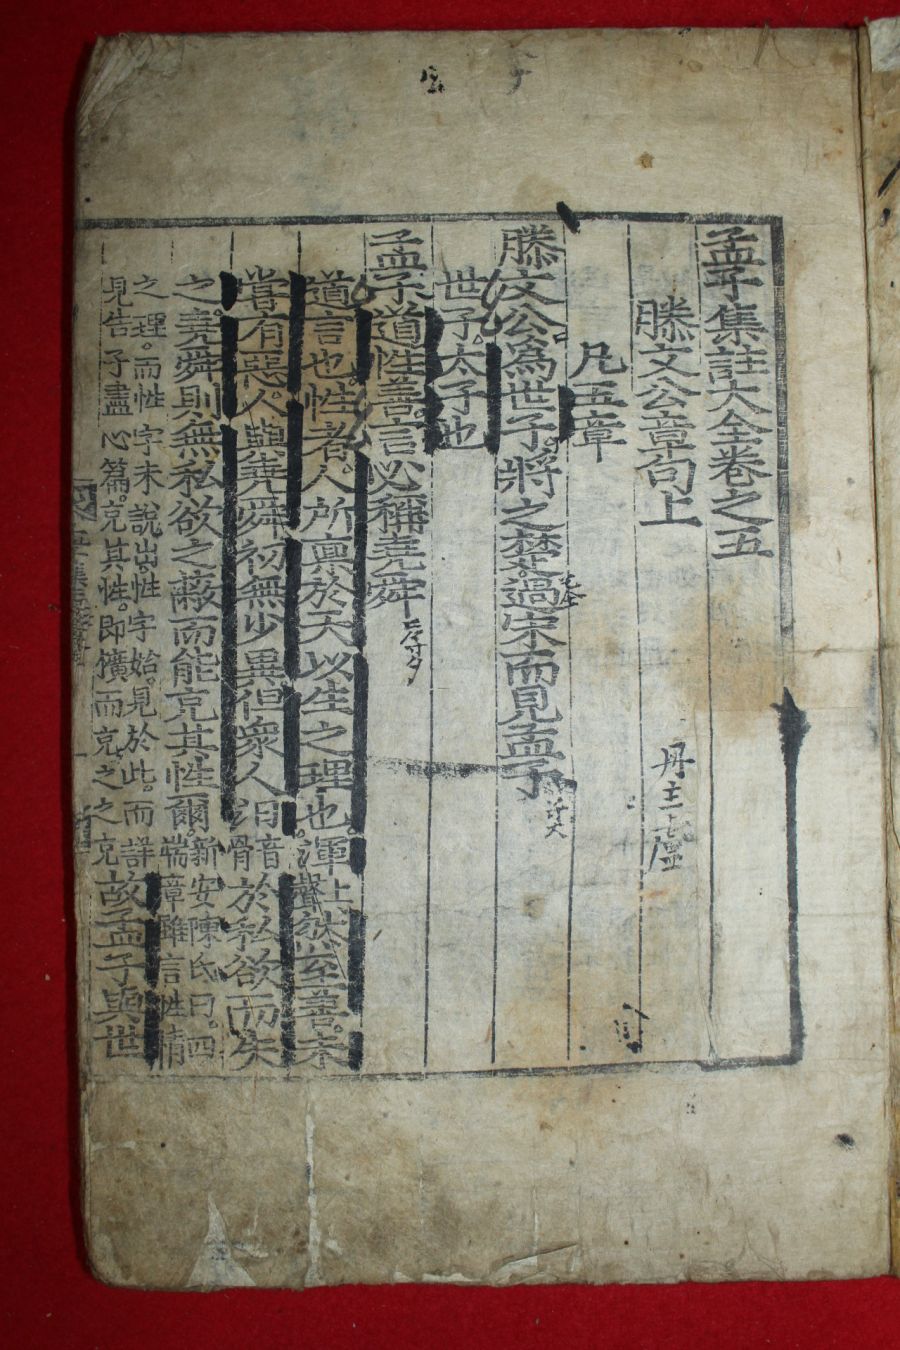 孟子集註大全卷之五
滕文公章句上
凡五章
滕文公爲世子將之楚過宋而見孟子
世子太子也
孟子道性善言必稱堯舜
道言也性者人所稟於天以生之理也渾上聲然至善未
嘗有惡人與堯舜初無少異但衆人汨音骨於私欲而失
之堯舜則無私欲之蔽而能充其性爾新安陳氏曰四端章雖言性情
之理而性字未說出性字始見於此而詳見告子盡心篇充其性卽擴而充之之充故孟子與世